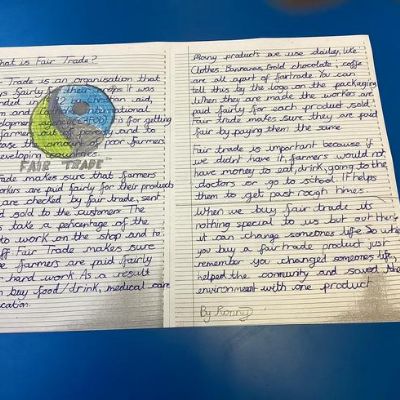 hat is Fair Trade?
Trade is an organisation that
fairly their It was
nded in 1992 Christian aid,
m and international
elopment for getting
farmers out of poverty and to
ease the amount of poor farmers
developing countries.
FAIR TRADE
rade makes sure that farmers
orkers are paid fairly for their products
are checked by fair trade, sent
d sold to the customer. The
s take a percentage of the
to work on the shop and to
ff Fair Trade makes sure
e farmers are paid fairly
hard work As a result
buy food/drink, medical care
cation.
Many products we use daily like
Clothes, Bannanas, Gold chocolate, coffe
are all apart of fairtrade. You can
tell this by the logo on the packaging
When they are made the workers are
paid fairly for each product sold.
Fair trade makes sure they are paid
fair by paying them the same.
Fair trade is important because if
we didnt have it, farmers would not
have money to eat, drink, going to the
doctors or go to school. It helps
them to get past rough times.
When we buy fair trade its
nothing special to us but out there
it can change someones life. So when
you buy a fairtrade product just
remember you changed someones life,
helped the community and saved the
environment with one product
By Ronny